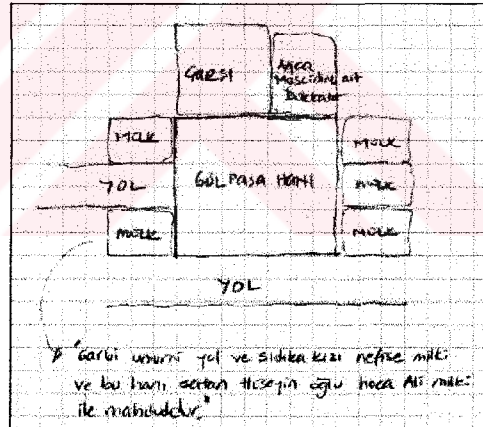 ÇARŞI
Ağca
Mescidine ait
Dükkanlar
MÜLK
MÜLK
YOL
GÜL PAŞA HANI
MÜLK
MÜLK
MÜLK
YOL
"Garbi umumi yol ve Sıdıka kızı nefise milki
ve bu hanı satan Hüseyin oğlu hoca Ali milki
ile mahduddur."